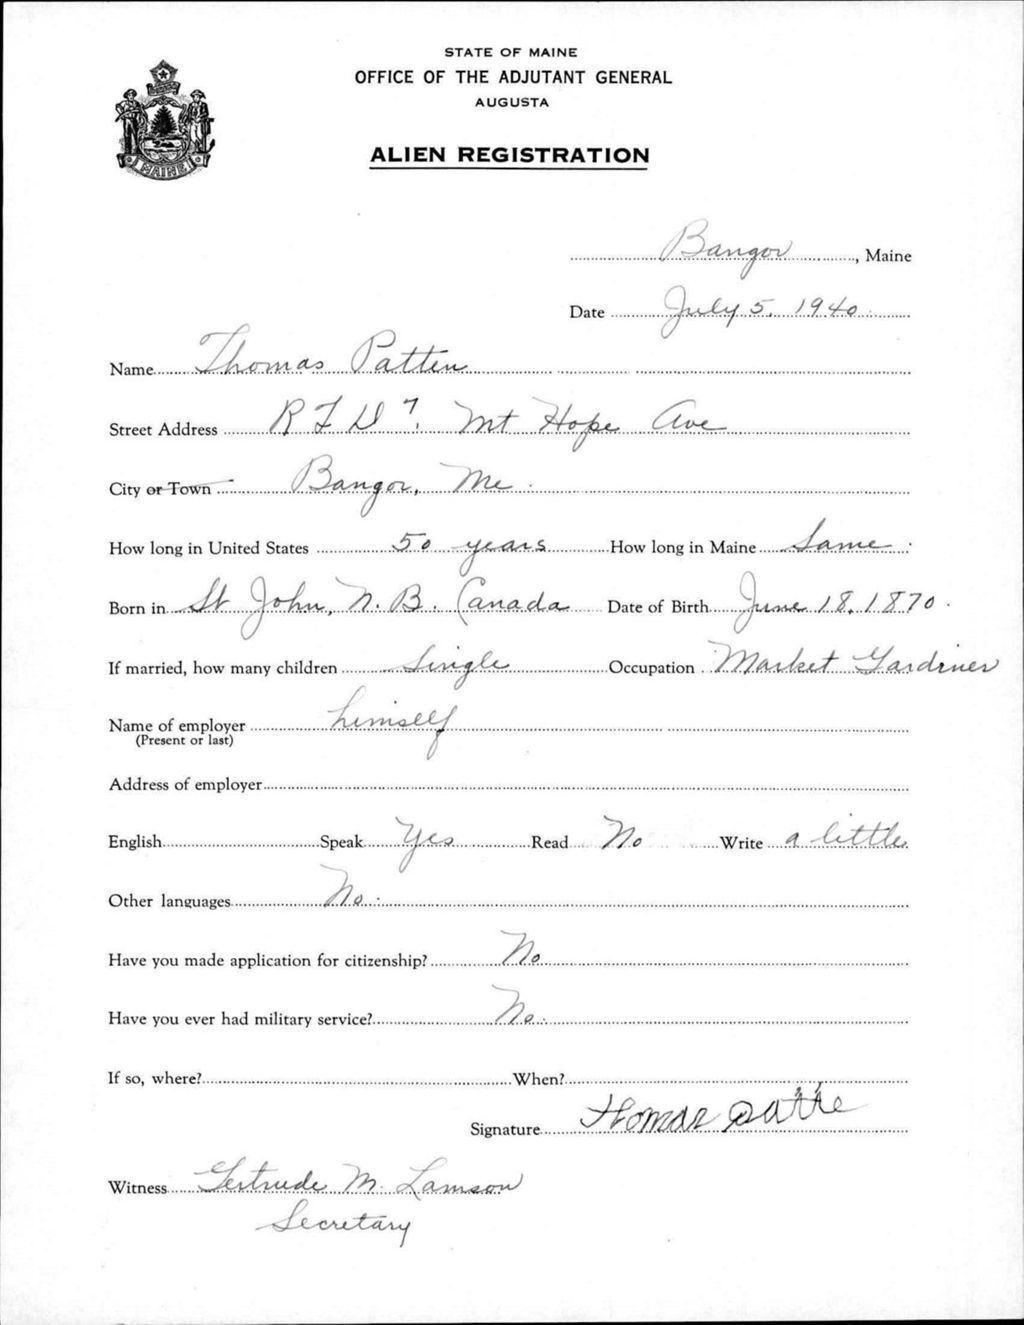 STATE OF MAINE
OFFICE OF THE ADJUTANT GENERAL
AUGUSTA
ALIEN REGISTRATION
MAINE
Bangor, Maine
Date July 5, 1940
Name Thomas Patten
Street Address R F D 7. Mt Hope Ave
City or Town Bangor, Me.
How long in United States 50 years How long in Maine Same.
Born in St John, N. B. Canada Date of Birth June 18, 1870.
If married, how many children Single Occupation Market Gardiner
Name of employer himself
(Present or last)
Address of employer
English Speak Yes Read No Write a little
Other languages No.
Have you made application for citizenship? No
Have you ever had military service? No.
If so, where? When?
Signature Thomas Patte
Witness Gertrude M. Lamson
Secretary